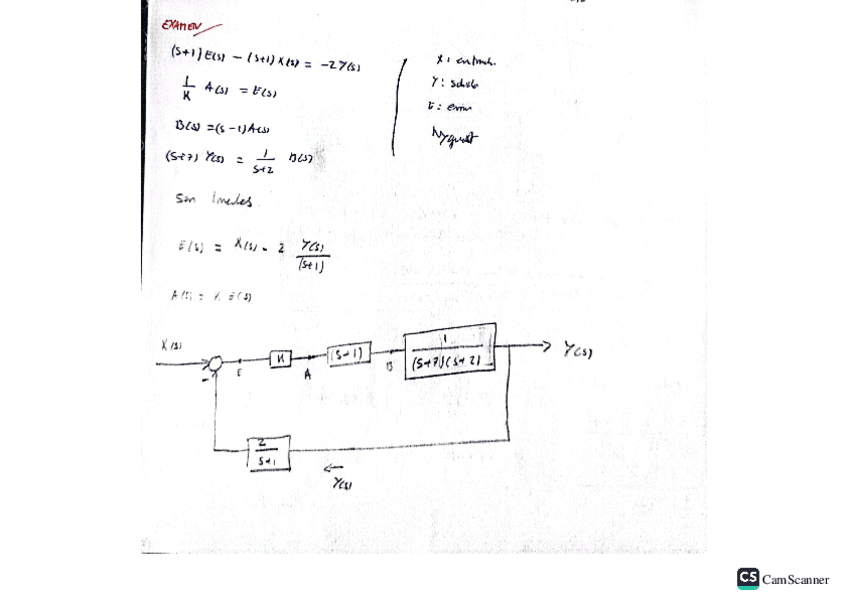 EXAMEN
(S+1)E(s) - (S+1)X(s) = -2Y(s)
1/K A(s) = E(s)
B(s) = (s-1)A(s)
(S+7) Y(s) = 1/S+2 B(s)
Son lineales.
E(s) = X(s) - 2 Y(s)/(s+1)
A(s) = K E(s)
X: entrada.
Y: salida
E: error
Nyquist
X(s)
E
K
A
(S-1)
B
1/(S+7)(S+2)
Y(s)
-
2/S+1
←
Y(s)
CS CamScanner